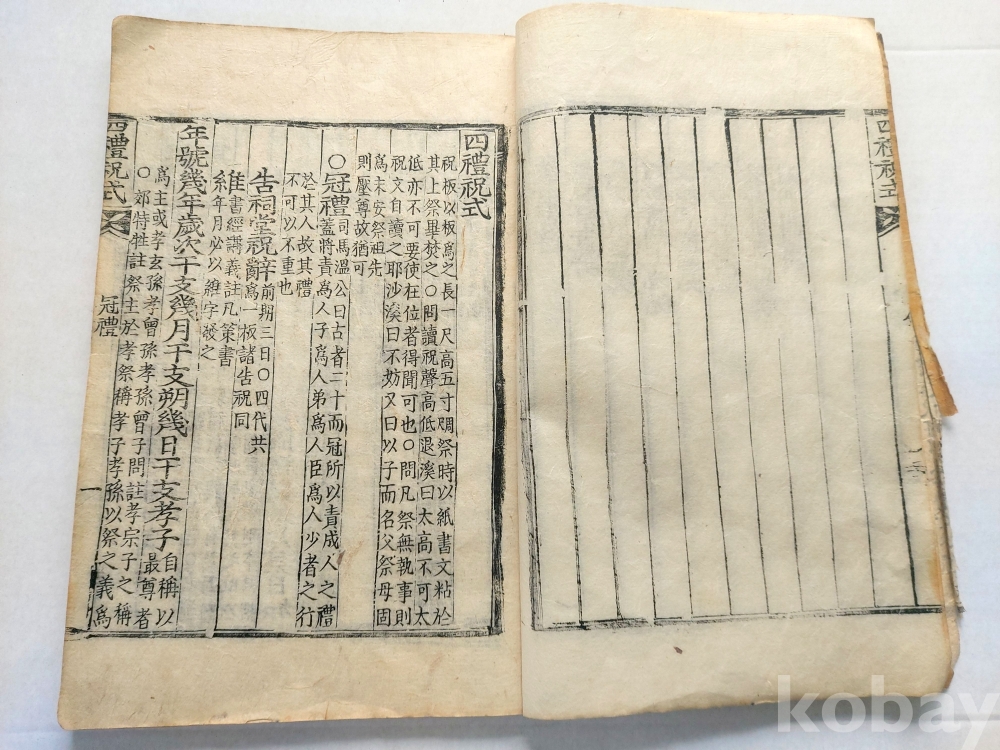 四禮祝式
祝板以板爲之長一尺高五寸周祭時以紙書文粘於
其上祭畢焚之○問讀祝聲高低退溪曰太高不可太
低亦不可要使在位者得聞可也○問凡祭無執事則
祝文自讀之耶沙溪曰不妨又曰以子而名父祭母固
爲未安祭祖先
則壓尊故猶可
○冠禮司馬溫公曰古者二十而冠所以責成人之禮
蓋將責爲人子爲人弟爲人臣爲人少者之行
於其人故其禮
不可以不重也
告祠堂祝辭前期三日○四代共
爲一板諸告祝同
維書經講義註凡策書
繫年月必以維字發之
年號幾年歲次干支幾月干支朔幾日干支孝子自稱以
最尊者
爲主或孝玄孫孝曾孫孝孫曾子問註孝宗子之稱
○郊特牲註祭主於孝祭稱孝子孝孫以祭之義爲
四禮祝式
冠禮
一
四禮祝式
kobay